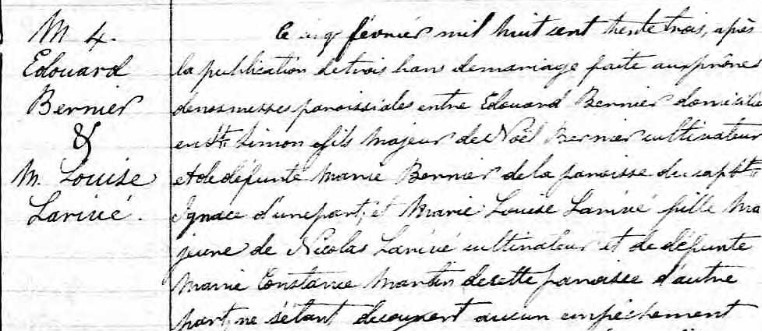 M 4.
Edouard
Bernier
&
M. Louise
Larivé.
Ce cinq février mil huit cent trente trois, après
la publication de trois bans de mariage faite aux prônes
de nos messes paroissiales entre Edouard Bernier domicilié
en St. Simon fils majeur de Noël Bernier cultivateur
et de défunte Marie Bernier de la paroisse du cap St.
Ignace d'une part; et Marie Louise Larivé fille ma
jeure de Nicolas Larivé cultivateur et de défunte
Marie Constance Martin de cette paroisse d'autre
part, ne s'étant découvert aucun empêchement